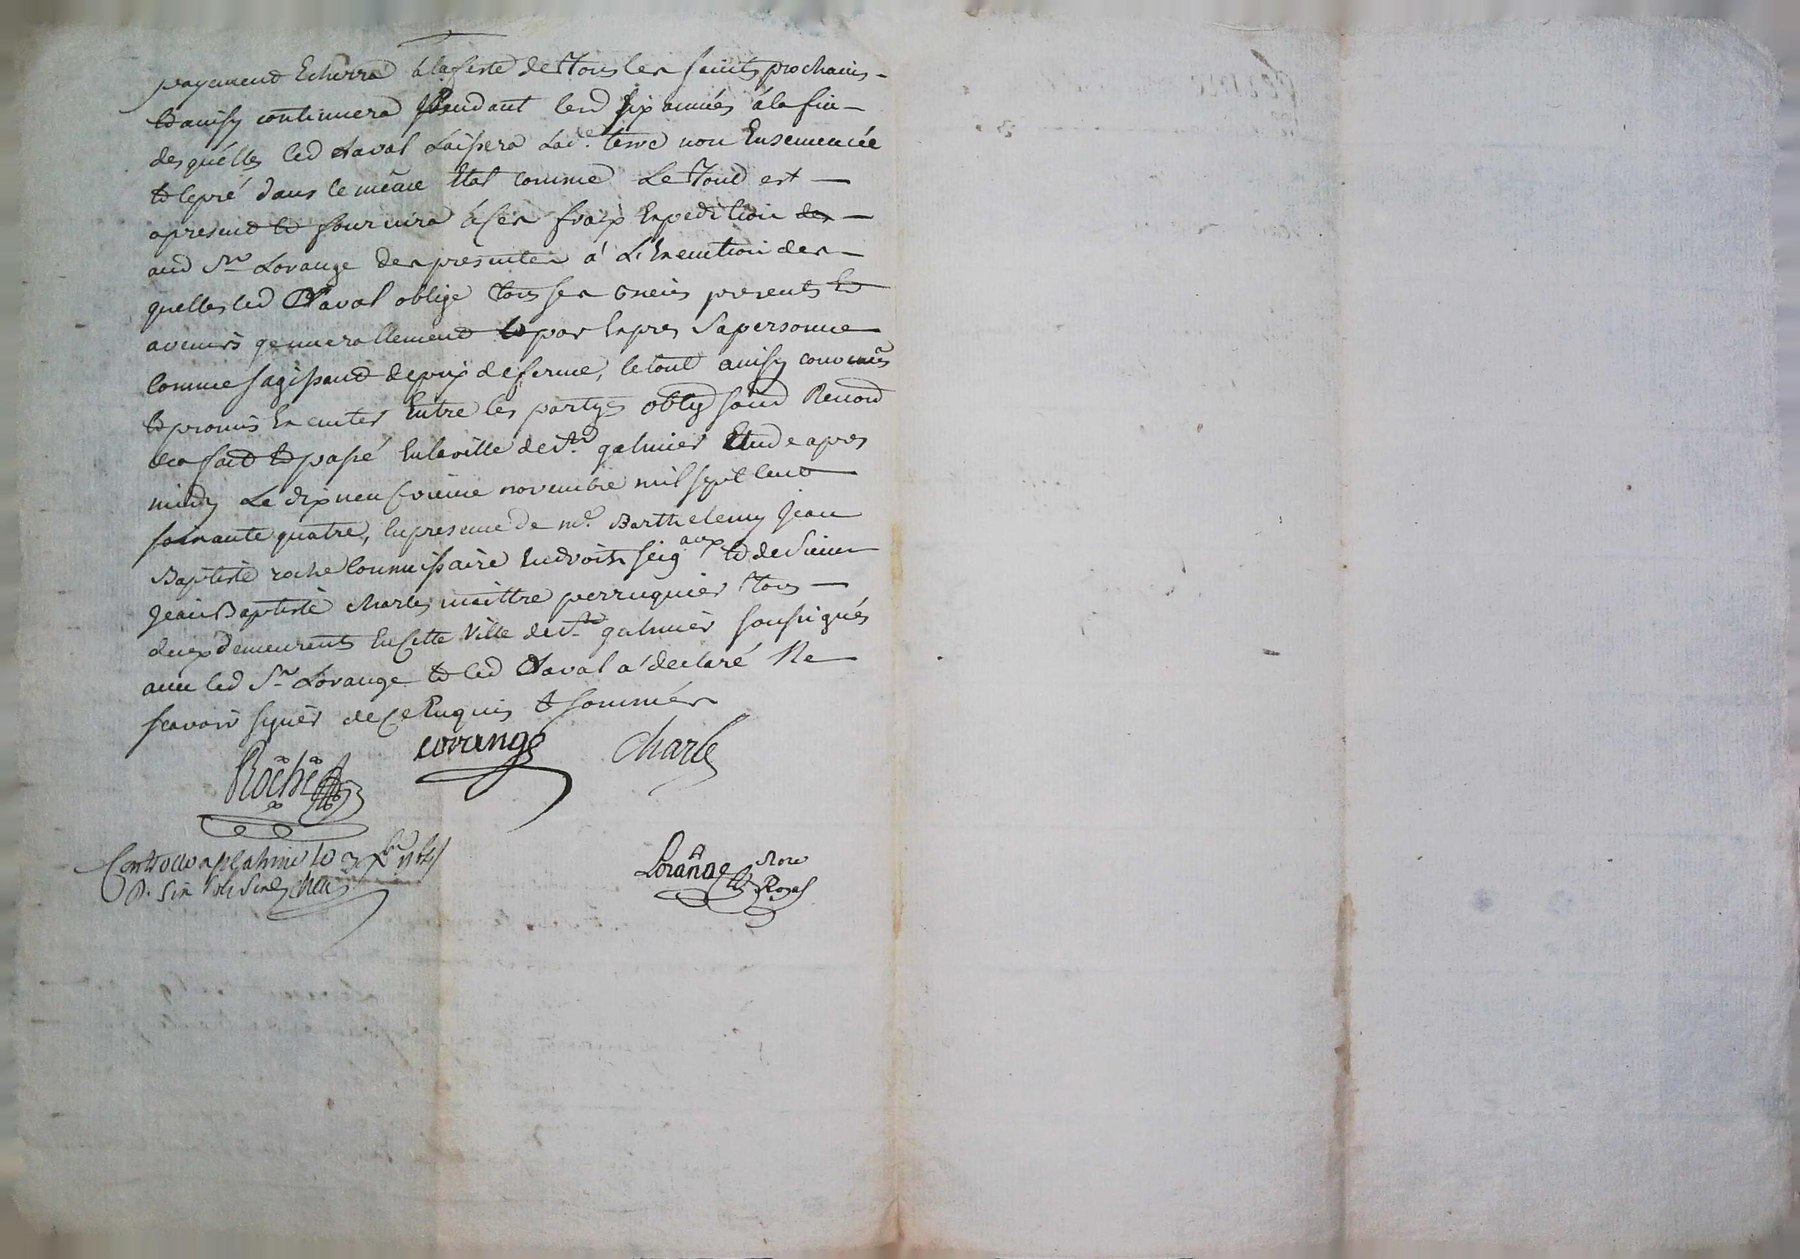 payement Echerra a la feste de Tous les saints prochains
Et ainsy continuera Pendant lesd six années á la fin
desquelles led Naval Laissera Lad.e terre non Ensemencée
Et le pré dans le même Etat comme Le Tout est
apresent Et fournira á ses fraix Expedition
aud Sr Lorange des presentes á L'Execution des
quelles led Naval oblige tous ses biens presents Et
avenirs generallement Et par Expres Sa personne
Comme sagissant de prix de ferme, le tout ainsy convenu
Et promis Executer Entre les partyes oblig soud Renond
fait Et passé En la ville de St galmier Etude apres
midy Le dix neufvieme novembre mil sept Cent
soixante quatre, En presence de me. Barthelemy Jean
Baptiste roche Commissaire En droits seigaux Et de Sieur
Jean Baptiste charles maittre perruquier tous
deux demeurents En Cette Ville de St galmier soussignés
avec led Sr Lorange Et led Naval a declaré Ne
scavoir signer de Ce Enquis Et sommé
Roche Lorange Charle
Controllé a St galmier le 3
Lorange Nore
Royal